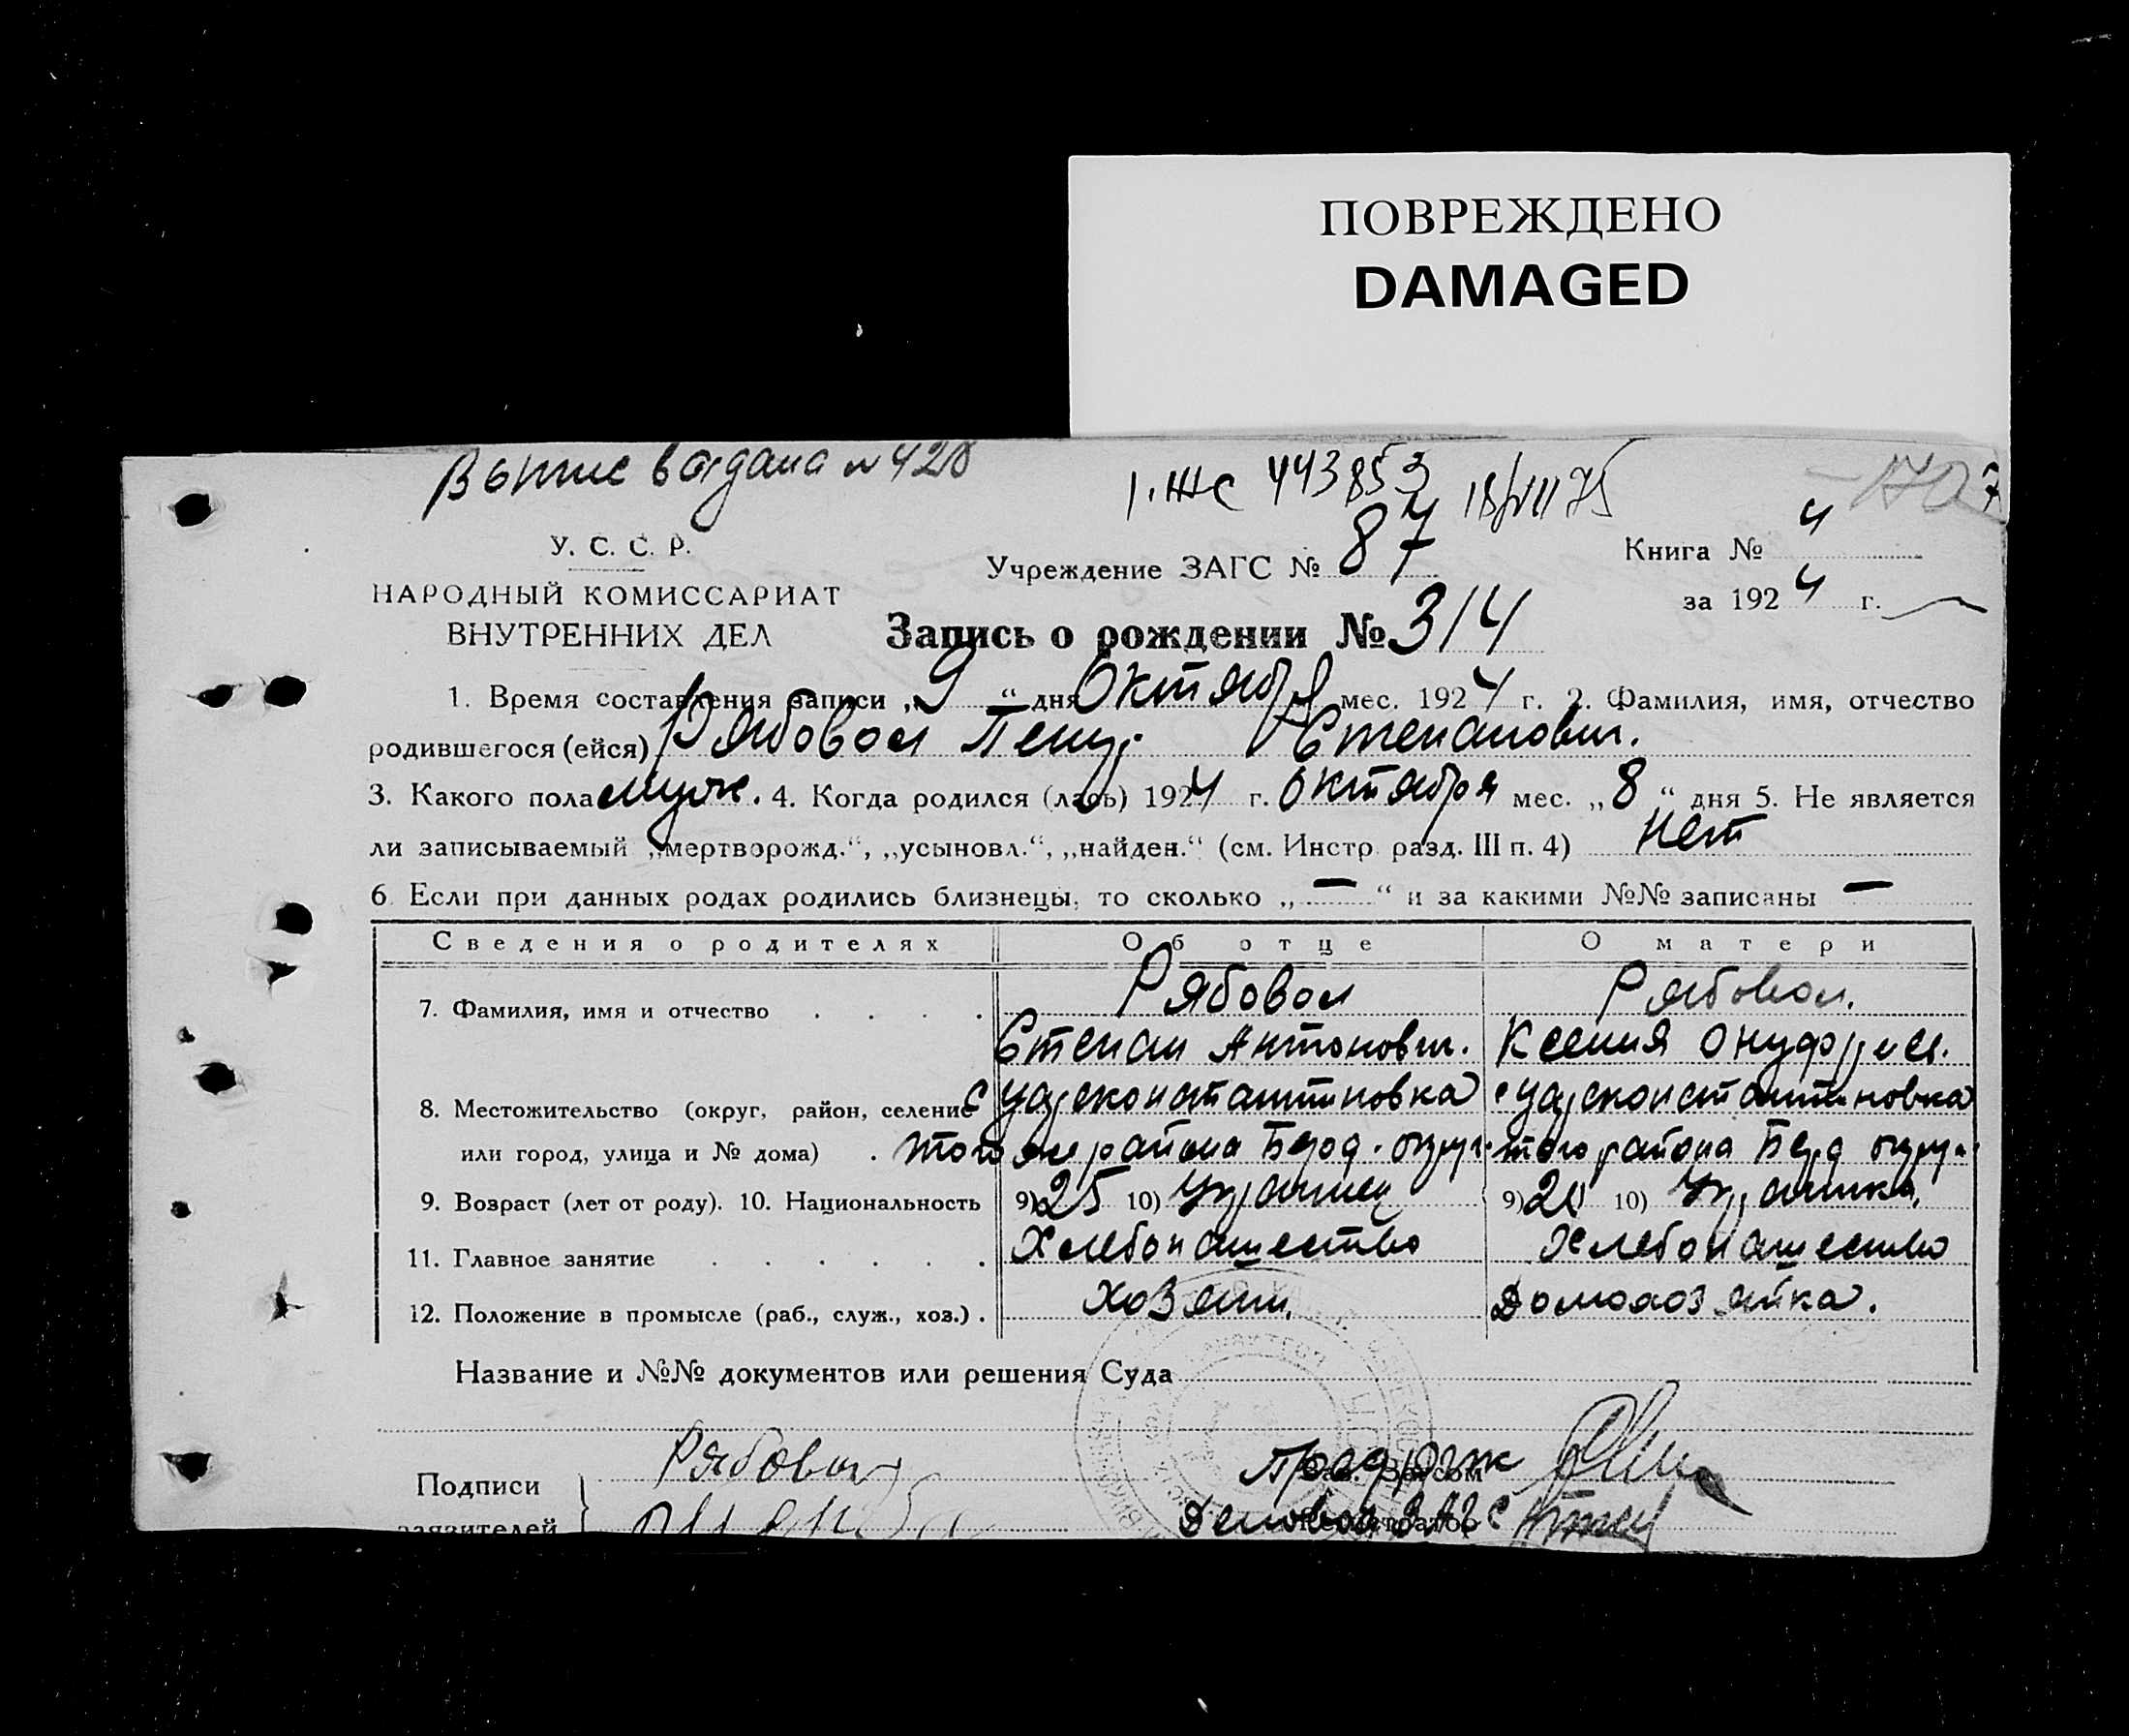 ПОВРЕЖДЕНО
DAMAGED
Выпис видана № 428
1. ЖС 443853 18/VII 75
170 7
У. С. С. Р.
НАРОДНЫЙ КОМИССАРИАТ
ВНУТРЕННИХ ДЕЛ
Учреждение ЗАГС № 87
Книга № 4
за 1924 г.
Запись о рождении № 314
1. Время составления записи „9“ дня Октября мес. 1924 г. 2. Фамилия, имя, отчество
родившегося (ейся) Рябовол Петр Степанович.
3. Какого пола муж. 4. Когда родился (лась) 1924 г. октября мес. „8“ дня 5. Не является
ли записываемый „мертворожд.“, „усыновл.“, „найден.“ (см. Инстр. разд. III п. 4) нет
6. Если при данных родах родились близнецы, то сколько „—“ и за какими №№ записаны —
Сведения о родителях Об отце О матери
7. Фамилия, имя и отчество . . . . Рябовол Рябовол.
Степан Антонович. Ксения Онуфриев.
8. Местожительство (округ, район, селение с Царсконстантиновка с Царсконстантиновка
или город, улица и № дома) . того же района Берд. округ. того района Берд округ.
9. Возраст (лет от роду). 10. Национальность 9) 25 10) Украинец 9) 20 10) Украинка.
11. Главное занятие . . . . . . Хлебопашество Хлебопашество
12. Положение в промысле (раб., служ., хоз.) . хозяин. Домохозяйка.
Название и №№ документов или решения Суда
Подписи
заявителей
Рябовол
Зав. Загсом
Деловод ЗАГС
Регистратор